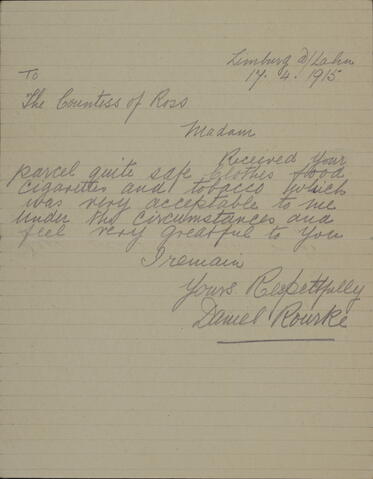 Limburg a/Lahn
17.4.1915
To
The Countess of Ross
Madam
Received Your
parcel quite safe Clothes food
cigarettes and tobacco which
was very acceptable to me
Under the circumstances and
feel very greatful to You
I remain
Yours Respectfully
Daniel Rourke